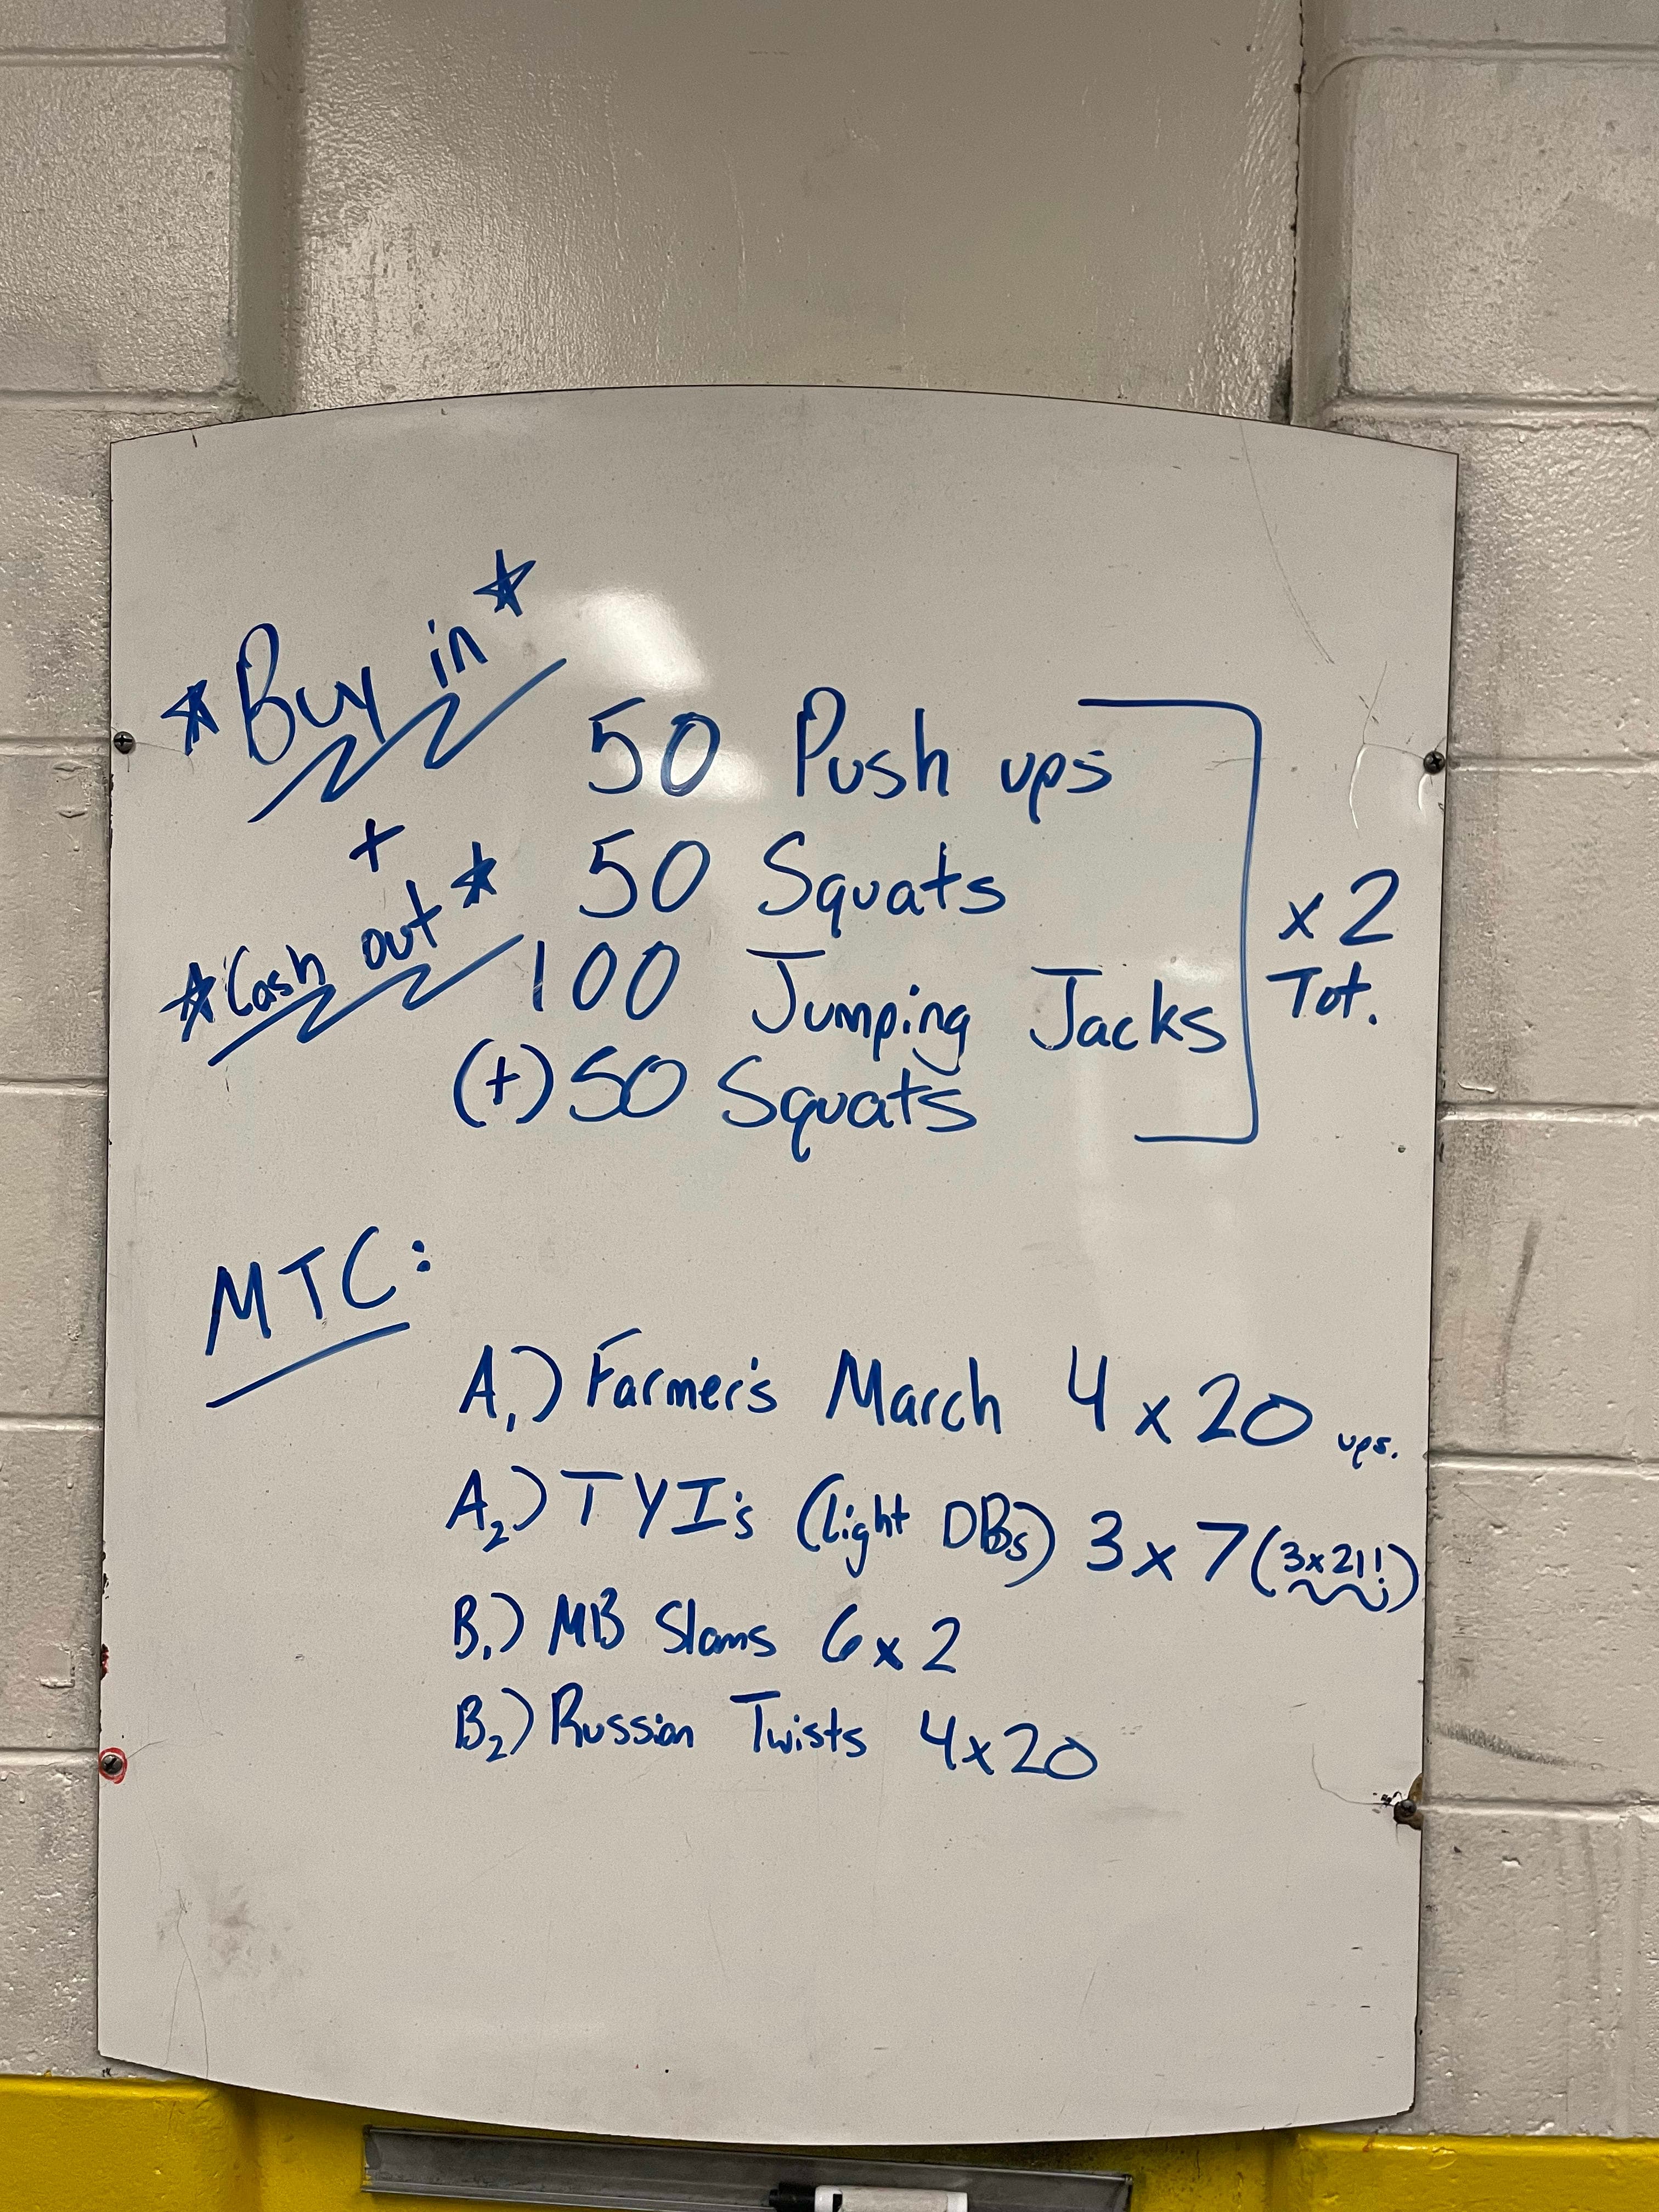 *Buy in*
+
*Cash out*
50 Push ups
50 Squats
100 Jumping Jacks
(+) 50 Squats
x2
Tot.
MTC:
A1) Farmer's March 4 x 20 ups.
A2) TYI's (light DBs) 3 x 7 (3x21!)
B1) MB Slams 6 x 2
B2) Russian Twists 4 x 20